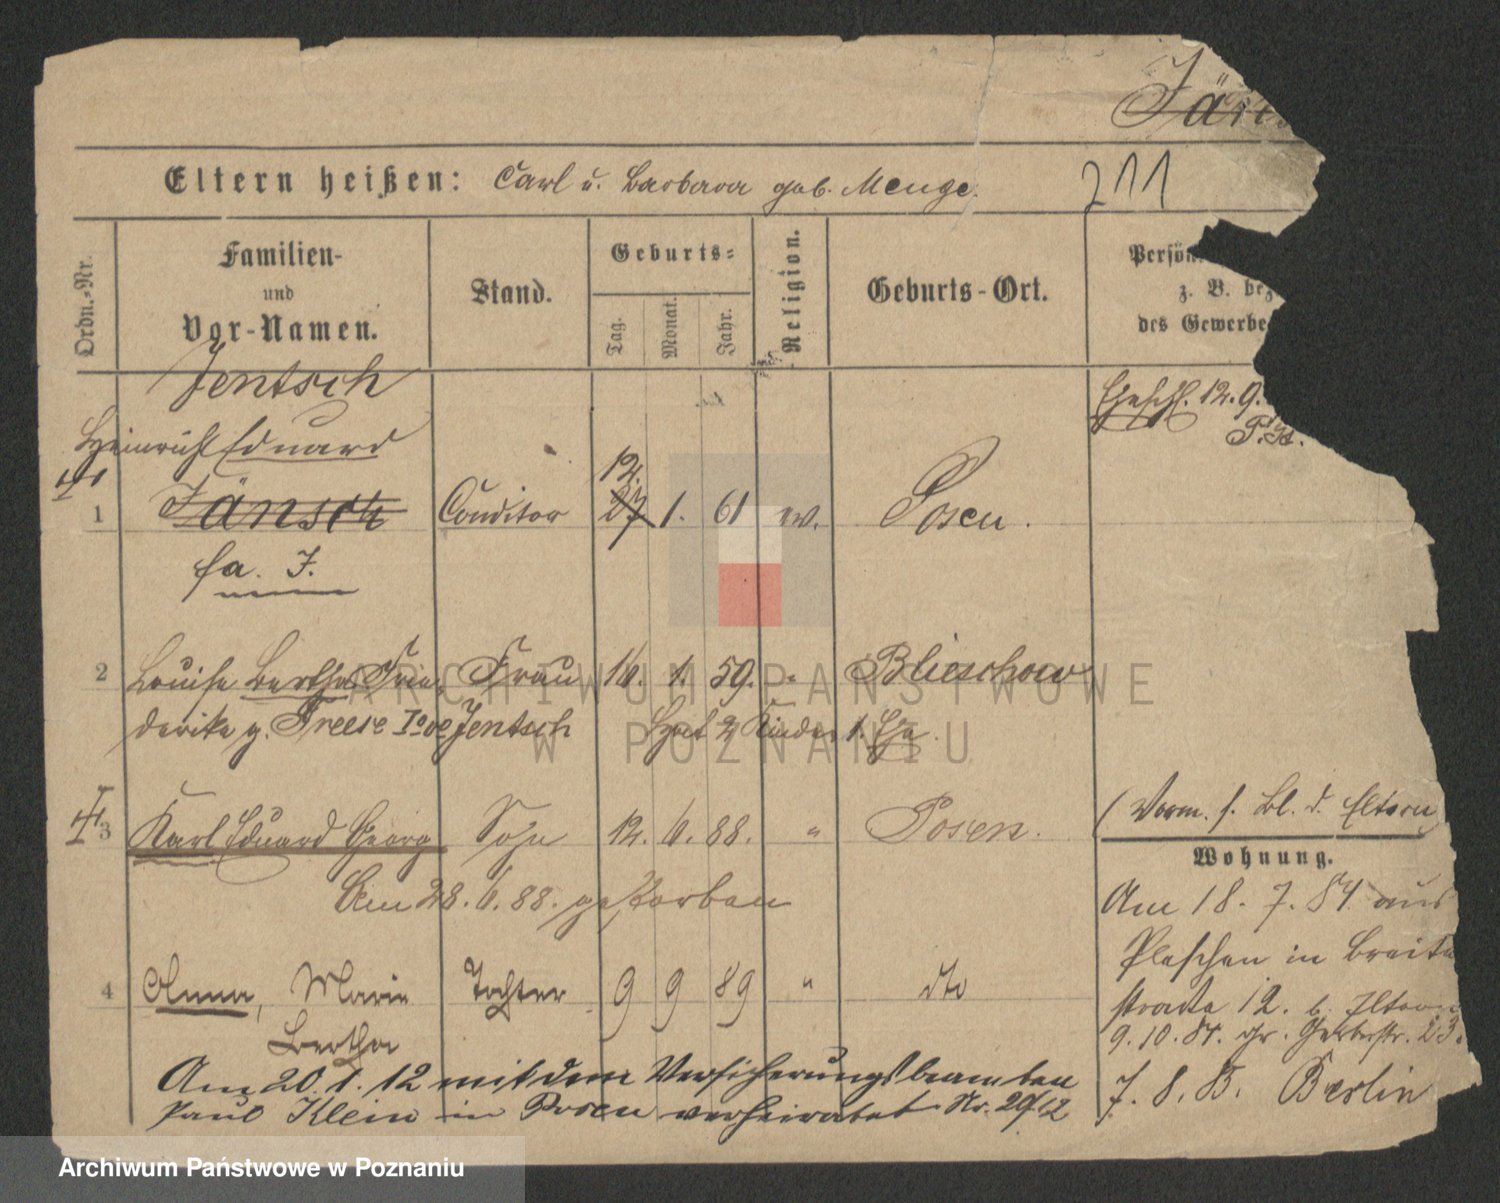 Eltern heißen: Carl u. Barbara geb. Menge.
211
Ordn.-Nr.
Familien-
und
Vor-Namen.
Stand.
Geburts-
Tag.
Monat.
Jahr.
Religion.
Geburts-Ort.
Persön
z. B. bez
des Gewerbe
Jentsch
Heinrich Eduard
1 Jänsch Conditor 12. 27 1. 61 ev. Posen.
fa. J.
Eheschl. 12. 9.
2 Louise Bertha Frie- Frau 16. 1. 59. " Blieschow
derike g. Freese Jentsch Hat 2 Kinder 1. Ehe.
3 Karl Eduard Georg Sohn 12. 6. 88. " Posen.
Am 28. 6. 88. gestorben
4 Anna, Marie Tochter 9 9 89 " dto
Bertha
Am 20. 1. 12 mit dem Versicherungsbeamten
Paul Klein in Posen verheiratet Nr. 20/12
(Vorm. s. Bl. d. Eltern)
Wohnung.
Am 18. 7. 84 aus
Pleschen in Breite
straße 12. b. Eltern
9. 10. 84. Gr. Gerberstr. 23.
7. 8. 85. Berlin
ARCHIWUM PAŃSTWOWE
W POZNANIU
Archiwum Państwowe w Poznaniu